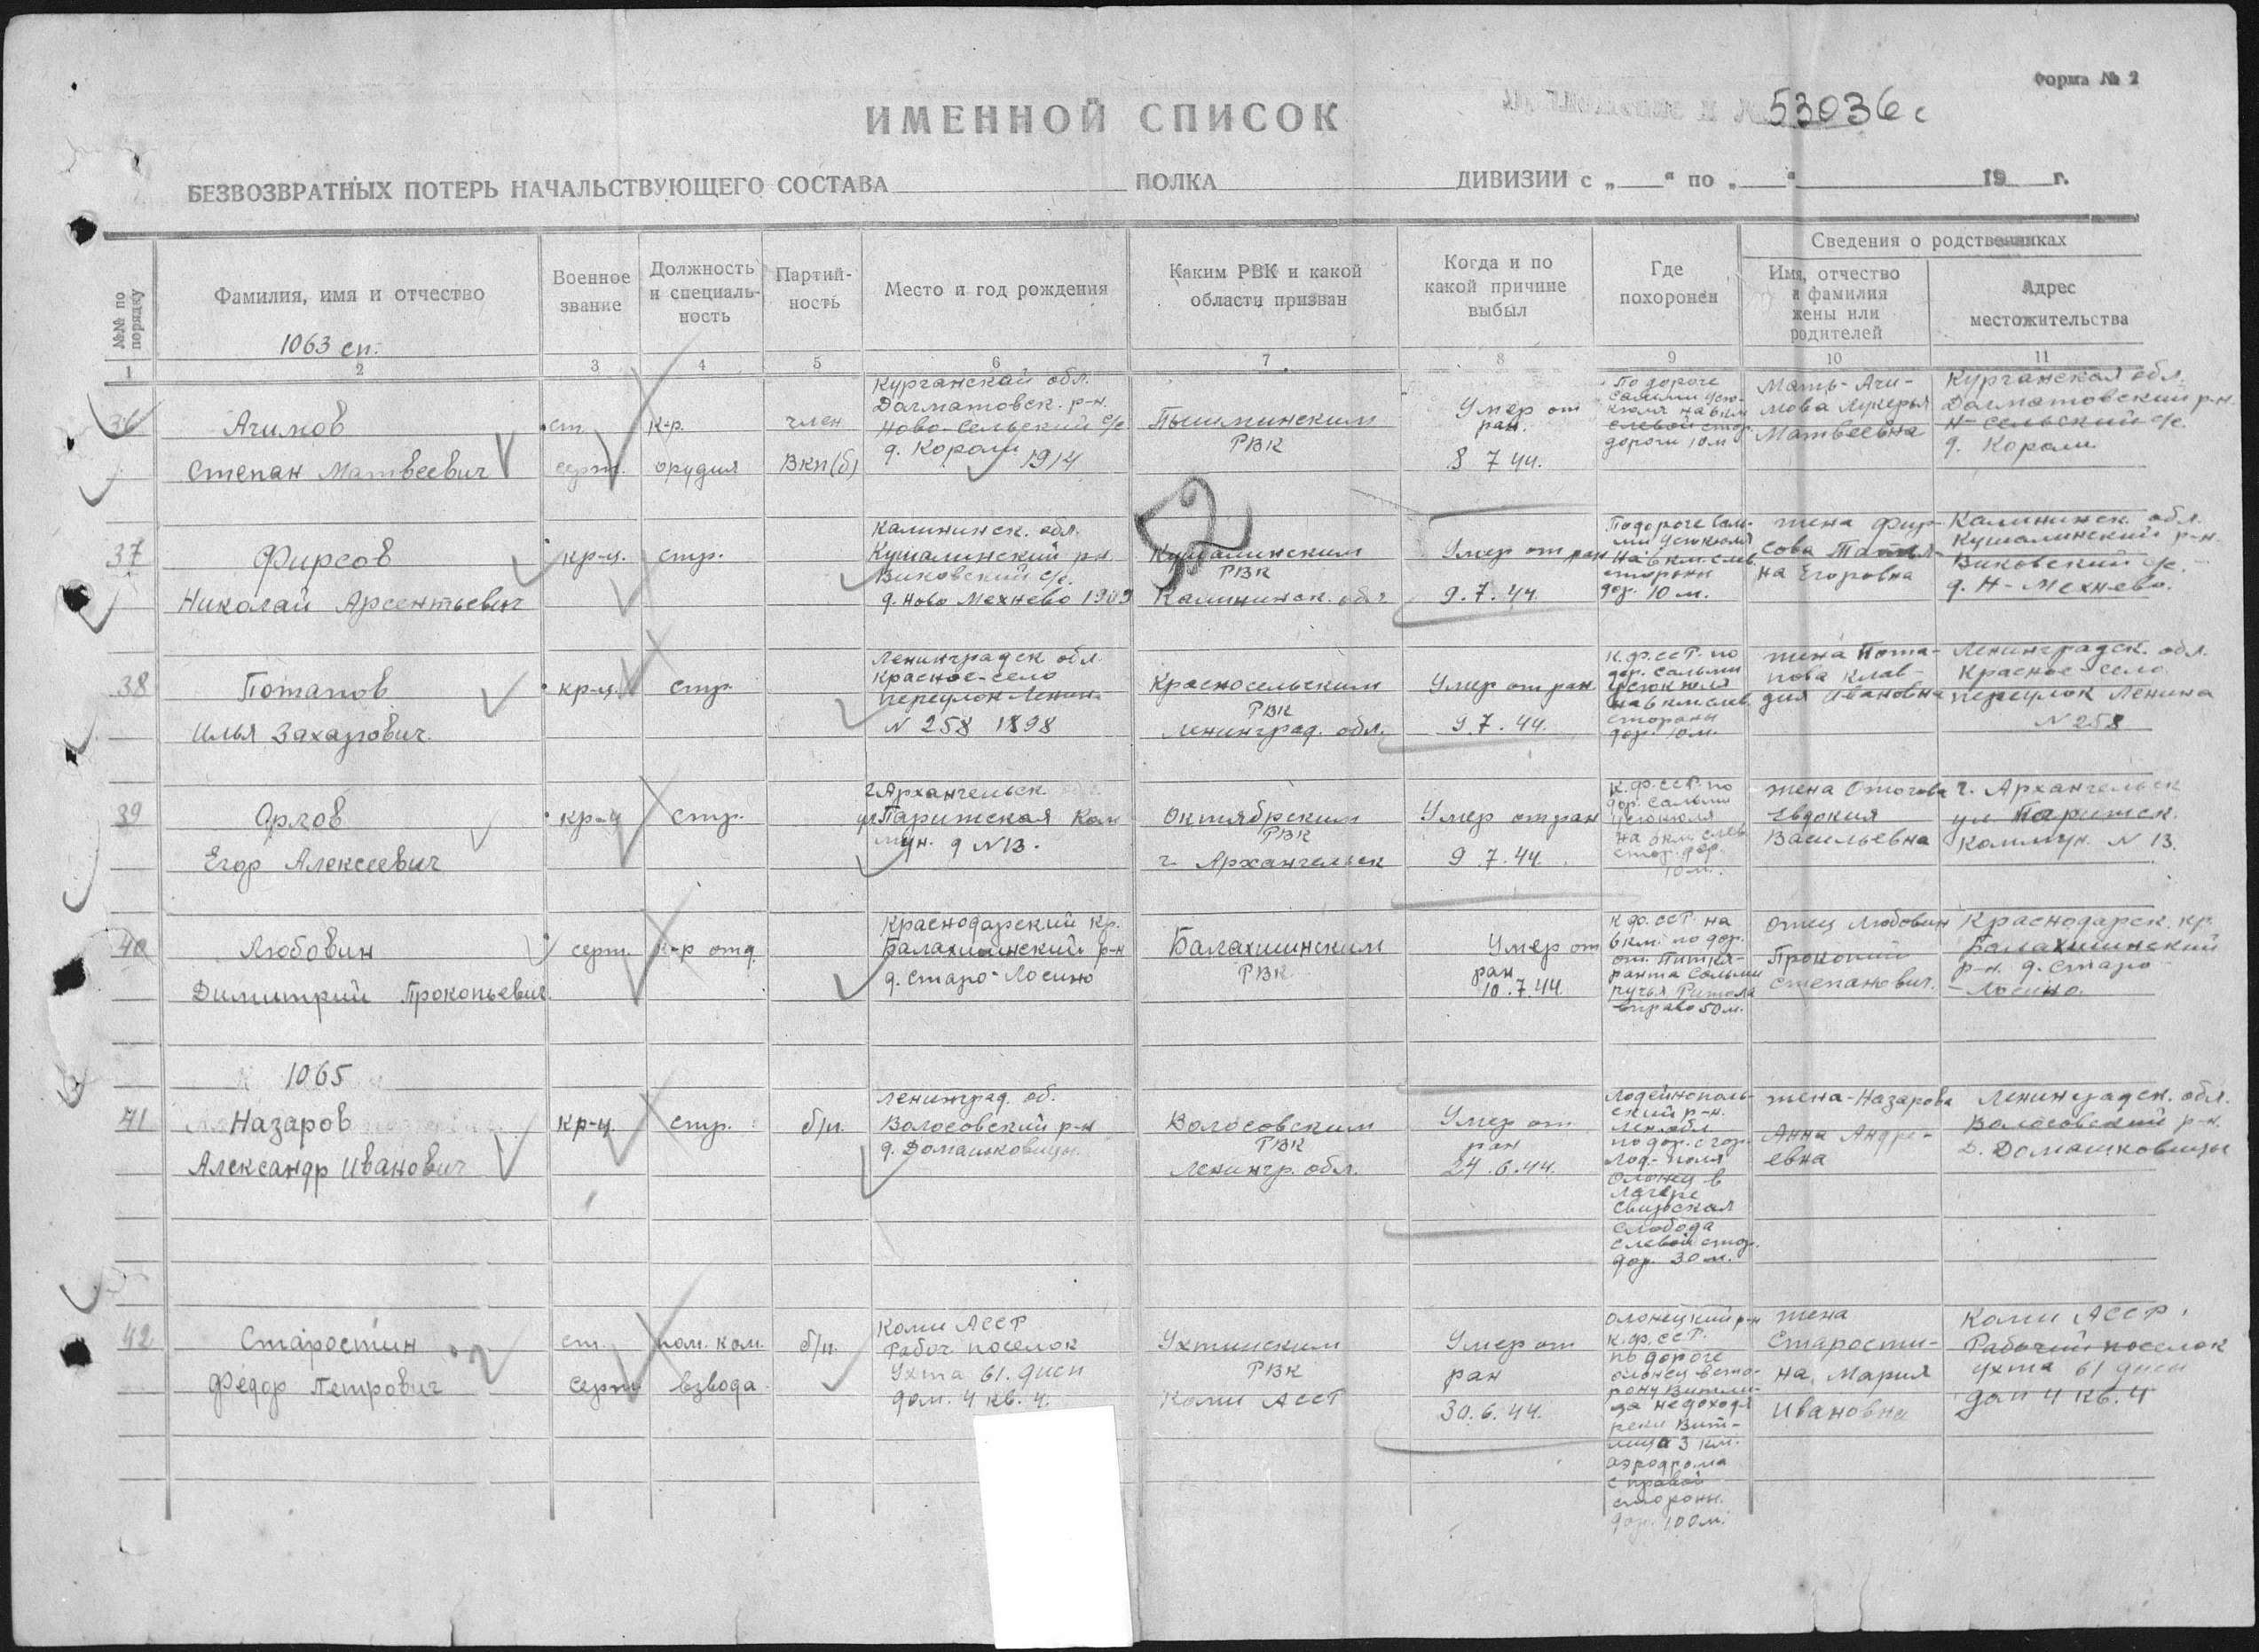 Форма № 2
53036с
ИМЕННОЙ СПИСОК
БЕЗВОЗВРАТНЫХ ПОТЕРЬ НАЧАЛЬСТВУЮЩЕГО СОСТАВА ПОЛКА ДИВИЗИИ с „ “ по „ “ 19 г.
№№ по порядку
Фамилия, имя и отчество
1063 сп.
Военное звание
Должность и специальность
Партийность
Место и год рождения
Каким РВК и какой области призван
Когда и по какой причине выбыл
Где похоронен
Сведения о родственниках
Имя, отчество и фамилия жены или родителей
Адрес местожительства
1 2 3 4 5 6 7 8 9 10 11
36
Ачимов
Степан Матвеевич
ст. серж.
к-р. орудия
член ВКП(б)
Курганской обл.
Далматовск. р-н.
Ново-Сельский с/с
д. Короли 1914
Пышминским
РВК
Умер от
ран.
8 7 44.
По дороге
Салми Уск-
юля на 6 км
слевой стор.
дороги 10 м
Мать-Ачи-
мова Лукерья
Матвеевна
Курганская обл.
Далматовский р-н.
Н-Сельский с/с.
д. Короли
37
Фирсов
Николай Арсентьевич
кр-ц.
стр.
Калининск. обл.
Кушалинский рн.
Виковский с/с.
д. Ново Мехнево 1909
Кушалинским
РВК
Калининск. обл
Умер от ран
9.7.44.
По дороге Сал-
ми Ускюля
на 6 км. слев.
стороны
дор. 10 м.
жена Фир-
сова Татья-
на Егоровна
Калининск. обл.
Кушалинский р-н.
Виковский с/с.
д. Н-Мехнево.
38
Потапов
Илья Захарович.
кр-ц.
стр.
Ленинградск обл.
Красное-село
переулок Ленина
N 258 1898
Красносельским
РВК
Ленинград. обл.
Умер от ран
9.7.44.
К.Ф.ССР. по
дор. Салми
Ускюля
на 6 км слев.
стороны
дор. 10 м.
жена Пота-
пова Клав-
дия Ивановна
Ленинградск. обл.
Красное-село
переулок Ленина
N 258
39
Орлов
Егор Алексеевич
кр-ц
стр.
г. Архангельск
ул Парижская Ком
мун. д N 13.
Октябрьским
РВК
г. Архангельск
Умер от ран
9.7.44.
К.Ф.ССР. по
дор. Салми
на 6 км, слев.
стор. дор.
10 м.
жена
Евдокия
Васильевна
г. Архангельск
ул Парижск.
Коммун. N 13.
40
Любовин
Димитрий Прокопьевич.
серж.
к-р отд.
Краснодарский кр.
Балахшинский р-н
д. Старо-Лосино
Балахшинским
РВК
Умер от
ран
10.7.44
К.Ф.ССР. на
6 км. по дор.
от Питкя-
ранта Салми
ручья
вправо 50 м.
отец Любовин
Прокопий
Степанович.
Краснодарск. кр.
Балахшинский
р-н. д. Старо
-Лосино.
1065
41
Назаров
Александр Иванович
кр-ц.
стр.
б/п.
Ленинград. об.
Волосовский р-н
д. Домашковицы.
Волосовским
РВК
Ленингр. обл.
Умер от
ран
24.6.44.
Лодейнополь-
ский р-н.
Лен. обл.
по дор. с гор.
Лод.-поля
Олонец в
лагере
Свирская
слобода
слевой стор.
дор. 30 м.
жена-Назарова
Анна Андре-
евна
Ленинградск. обл.
Волосовский р-н.
д. Домашковицы
42
Старостин
Федор Петрович
ст. серж
пом. ком. взвода
б/п.
Коми АССР
Рабоч. поселок
Ухта 61. дисп
дом. 4 кв. 4.
Ухтинским
РВК
Коми АССР
Умер от
ран
30.6.44.
Олонецкий р-н
К.Ф.ССР.
по дороге
Олонец в сто-
рону Видли-
ца не доходя
реки Вид-
лица 3 км.
аэродрома
с правой
стороны.
дор. 100 м.
жена
Старости-
на, Мария
Ивановна
Коми АССР.
Рабочий поселок
Ухта 61 дисп
дом 4 кв. 4